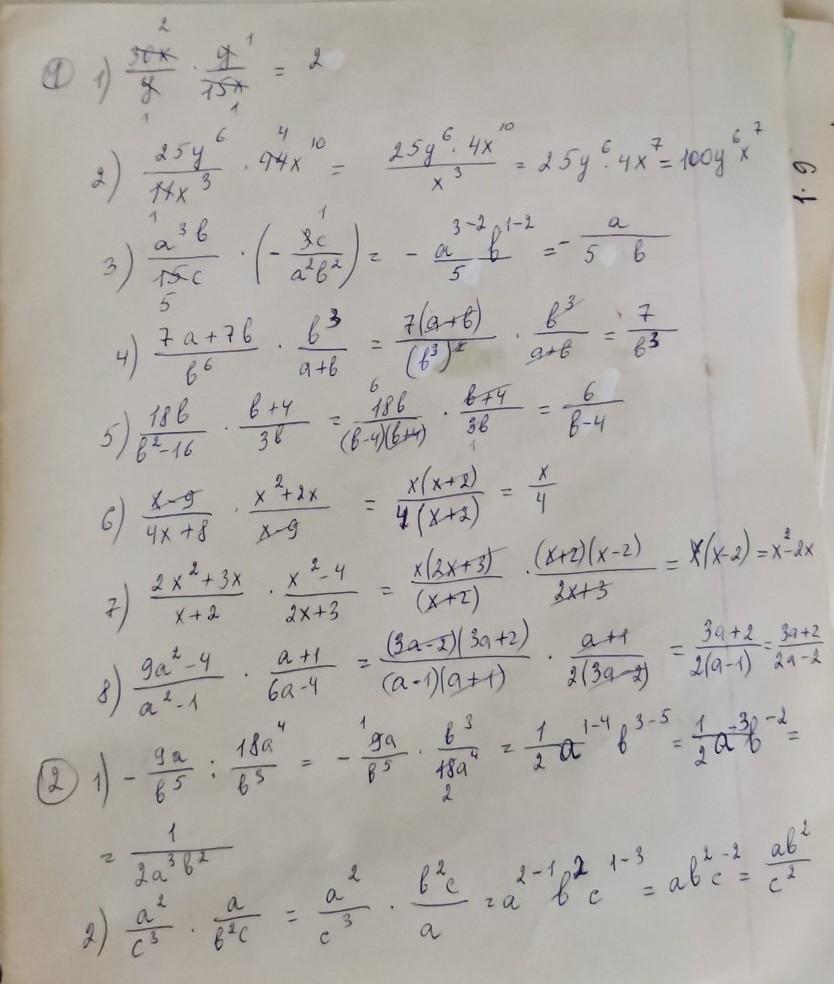 ① 1) 30x/y · y/15x = 2
2) 25y^6/11x^3 · 44x^10 = 25y^6 · 4x^10/x^3 = 25y^6 · 4x^7 = 100y^6x^7
3) a^3b/15c · (- 3c/a^2b^2) = - a^(3-2) b^(1-2)/5 = - a/5b
4) 7a+7b/b^6 · b^3/a+b = 7(a+b)/(b^3)^2 · b^3/a+b = 7/b^3
5) 18b/b^2-16 · b+4/3b = 18b/(b-4)(b+4) · b+4/3b = 6/b-4
6) x-9/4x+8 · x^2+2x/x-9 = x(x+2)/4(x+2) = x/4
7) 2x^2+3x/x+2 · x^2-4/2x+3 = x(2x+3)/(x+2) · (x+2)(x-2)/2x+3 = x(x-2) = x^2-2x
8) 9a^2-4/a^2-1 · a+1/6a-4 = (3a-2)(3a+2)/(a-1)(a+1) · a+1/2(3a-2) = 3a+2/2(a-1) = 3a+2/2a-2
② 1) - 9a/b^5 : 18a^4/b^3 = - 9a/b^5 · b^3/18a^4 = 1/2 a^(1-4) b^(3-5) = 1/2 a^-3 b^-2 =
= 1/2a^3b^2
2) a^2/c^3 · a/b^2c = a^2/c^3 · b^2c/a = a^(2-1) b^2 c^(1-3) = ab^2c^-2 = ab^2/c^2